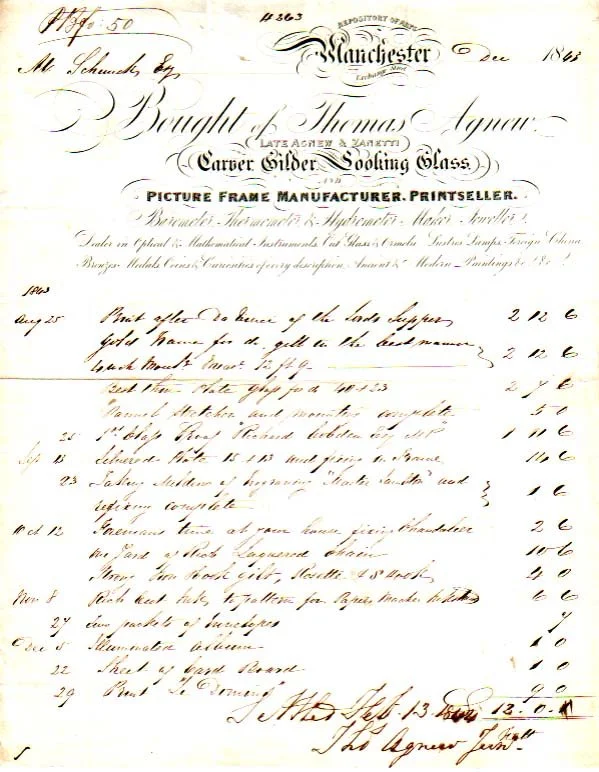 50
REPOSITORY OF ARTS
Manchester
Exchange Street
Dec 1843
Schunck Esq
Bought of Thomas Agnew.
LATE AGNEW & ZANETTI
Carver, Gilder, Looking Glass,
AND
PICTURE FRAME MANUFACTURER. PRINTSELLER.
Barometer, Thermometer & Hydrometer Maker Jeweller &c.
Dealer in Optical & Mathematical Instruments, Cut Glass & Ormolu Lustres Lamps, Foreign China
Bronzes Medals Coins & Curiosities of every description, Ancient & Modern Paintings &c. &c.
1843
Aug 25 Print after Da Vinci of the Lords Supper 2 12 6
Gold Frame for do. gilt in the best manner
4 inch 2 12 6
Best thin Plate Glass for do 40 x 23 2 7 6
and complete 5 0
25 Proof "Richard Cobden Esq MP" 1 11 6
Sep 13 Silvered Plate 15 x 13 and fixing in Frame 14 6
23 Taking of Engraving "Master Lambton" and
refixing complete 1 6
Oct 12 Foremans time at your house fixing Chandelier 2 6
one Yard of Rich Laquered Chain 10 6
Strong Iron Hook gilt, Rosette & S Hook 4 0
Nov 8 Rich Cut Ink, to pattern for Papier Mache 6 6
27 two packets of Envelopes 7
Dec 5 Illuminated Album 1 0
22 Sheet of Card Board 1 0
29 Print 9 0
Settled Feb. 13 1844 12. 0. 1
Thos Agnew